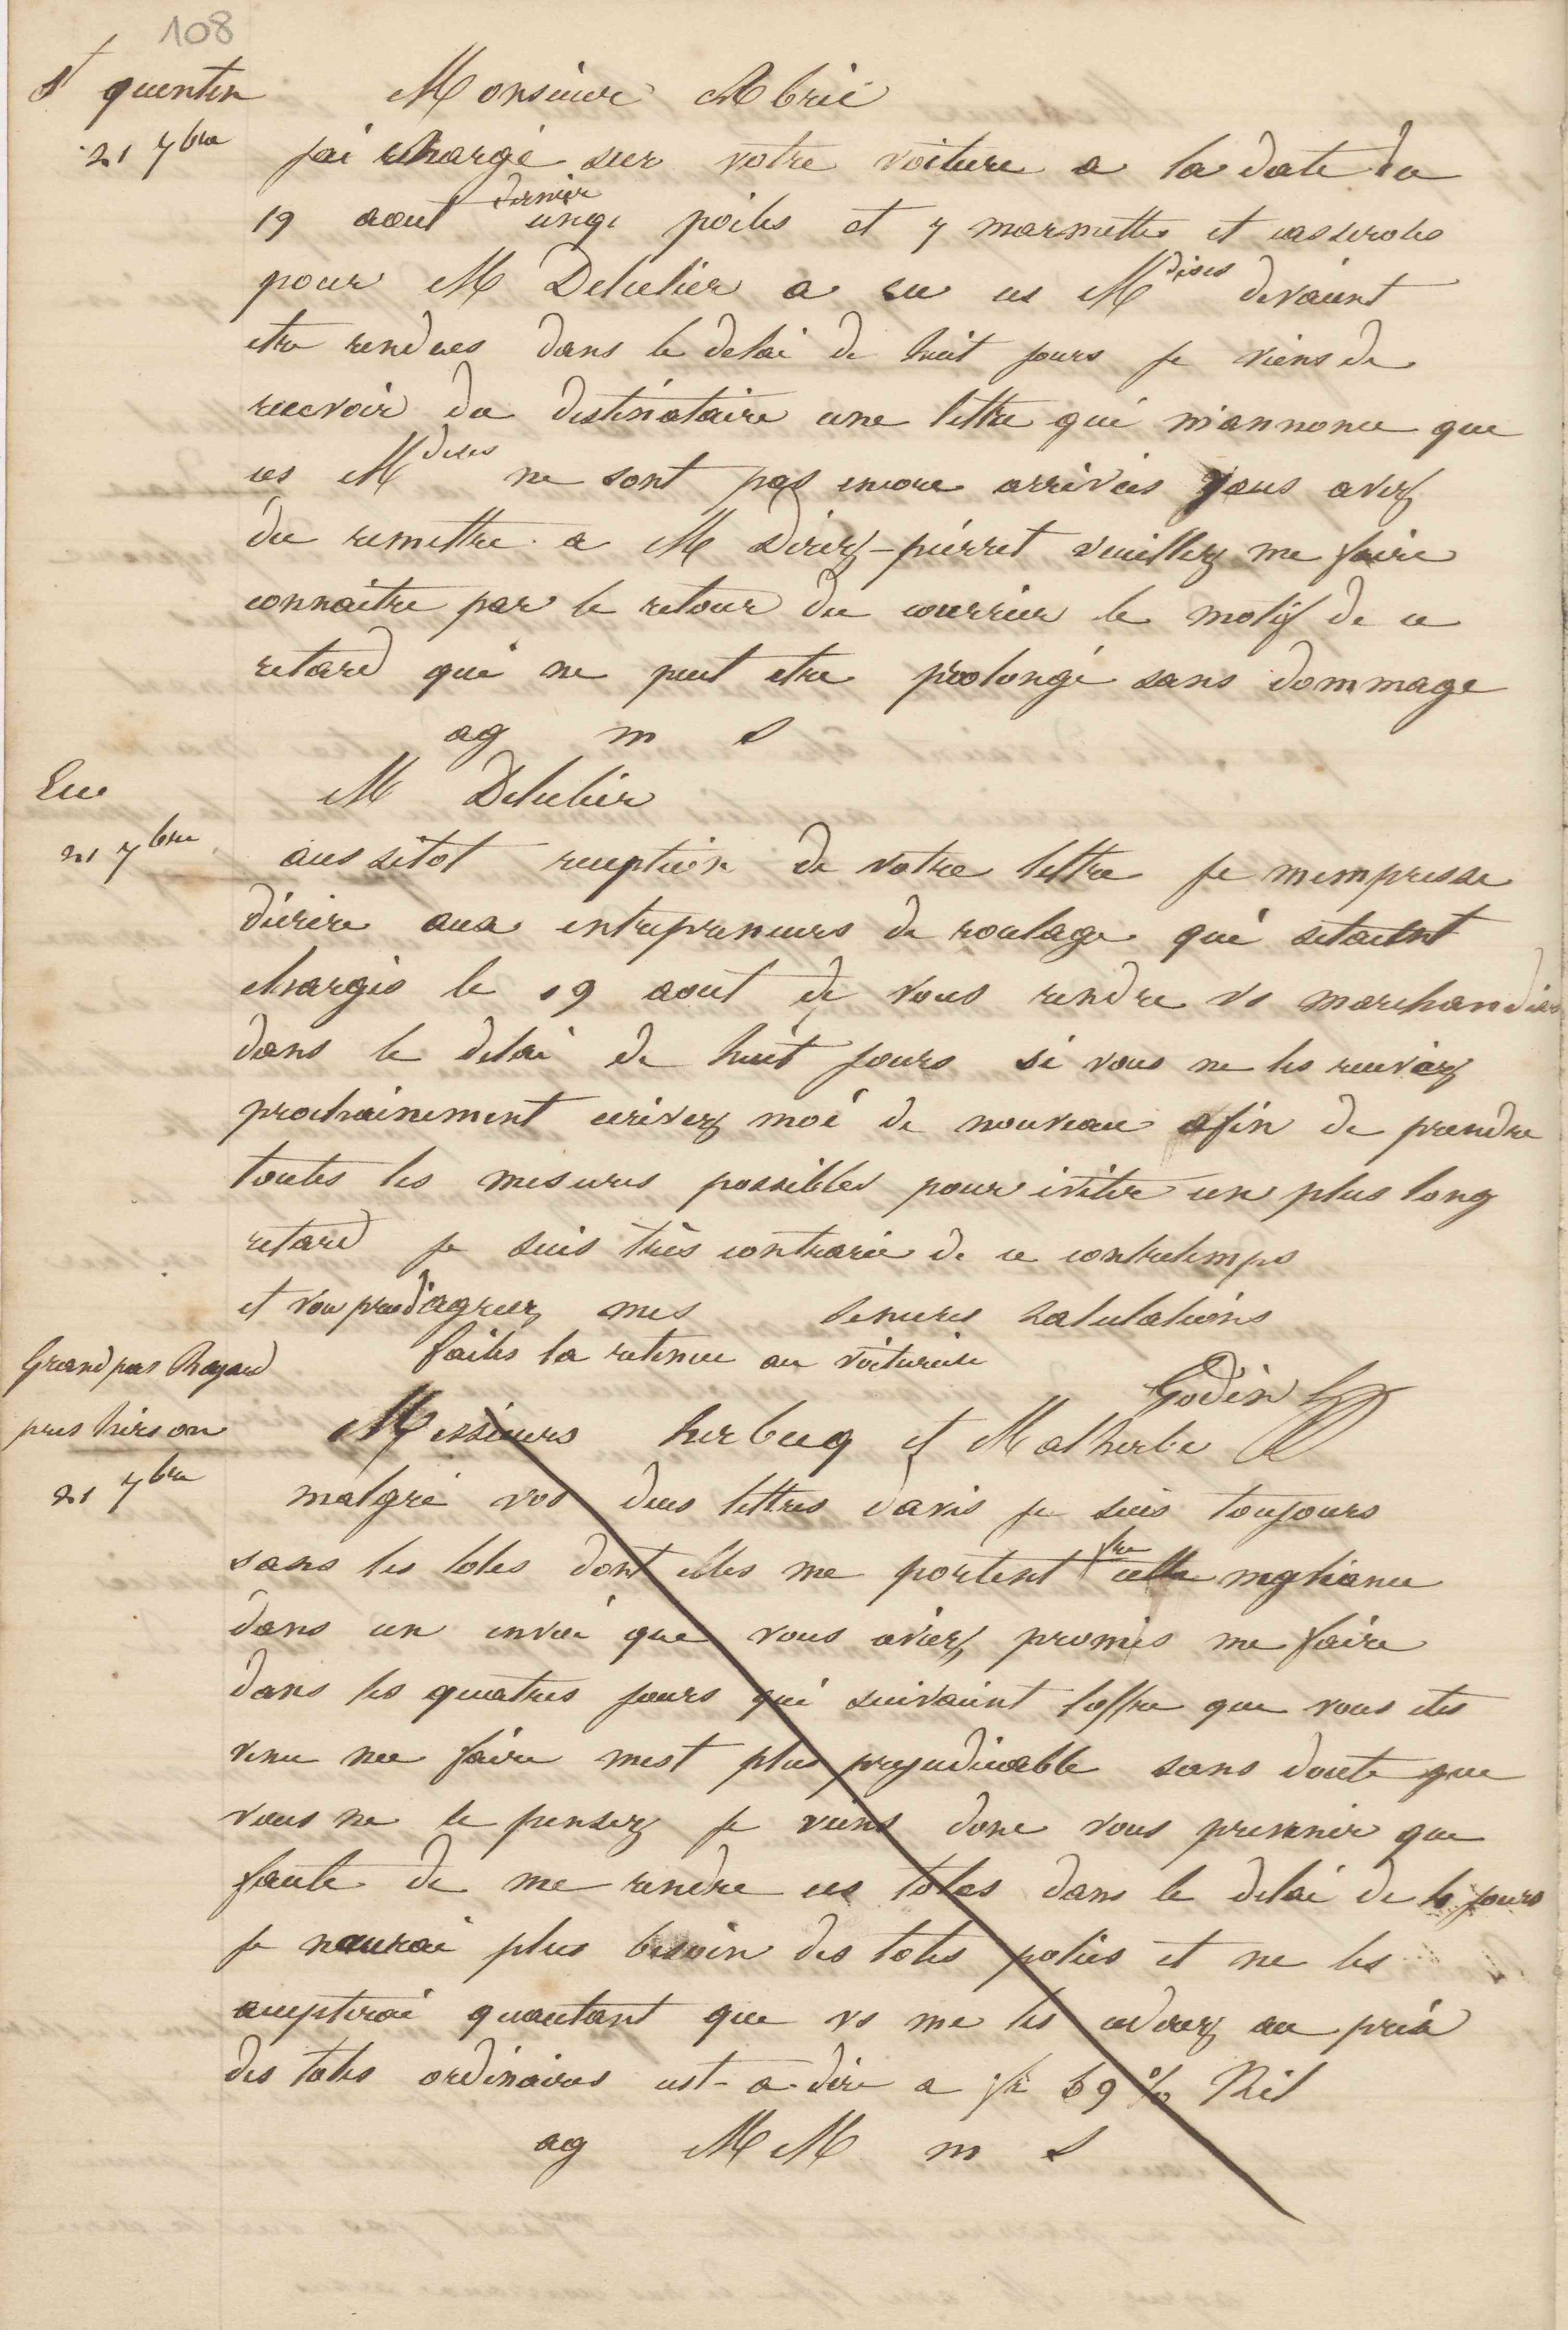 108
St quentin
21 7bre
Monsieur Abrié
jai chargé sur votre voiture a la date du
19 aout dernier poiles et 7 marmettes et casseroles
pour M Delulier a eu ces Mdises devaient
etre rendues dans le delai de huit jours je viens de
recevoir du destinataire une lettre qui mannonce que
ces Mdises ne sont pas encore arrivées vous avez
du remettre a M Dériez-pierret veuillez me faire
connaitre par le retour du courrier le motif de ce
retard qui ne peut etre prolongé sans dommage
ag m s
Eu
21 7bre
M Delulier
aussitot reception de votre lettre je mempresse
décrire aux entrepreneurs de roulage qui setaient
chargés le 19 aout de vous rendre vs marchandises
dans le delai de huit jours si vous ne les receviez
prochainement ecrivez moi de nouveau afin de prendre
toutes les mesures possibles pour éviter un plus long
retard je suis très contrarié de ce contretemps
et vou prie d'agreez mes sinceres salutations
faites la retenue au voiturier
Godin
Grand pas Bayard
pres hirson
21 7bre
Messieurs herbecq et Malherbe
malgré vos deus lettres davis je suis toujours
sans les toles dont elles me portent fre cette negliance
dans un envoi que vous aviez promis me faire
dans les quatres jours qui suivaient loffre que vous etes
venu me faire mest plus prejudiciable sans doute que
vous ne le pensez je viens donc vous prevenir que
faute de me rendre ces toles dans le delai de jours
je naurai plus besoin des toles polies et ne les
accepterai quautant que vs me les cederez au prix
des toles ordinaires cest-a-dire a fr 69 % Kil
ag MM m s